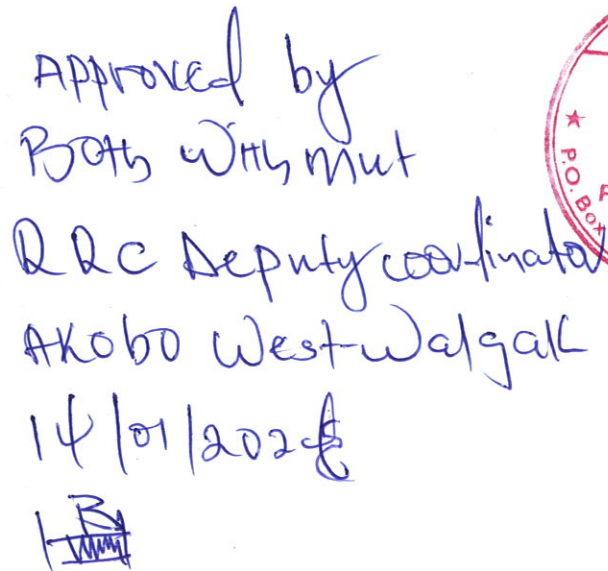 Approved by
Both With mut
RRC Deputy coordinator
Akobo West-Walgak
14/01/202
★ P.O. Box